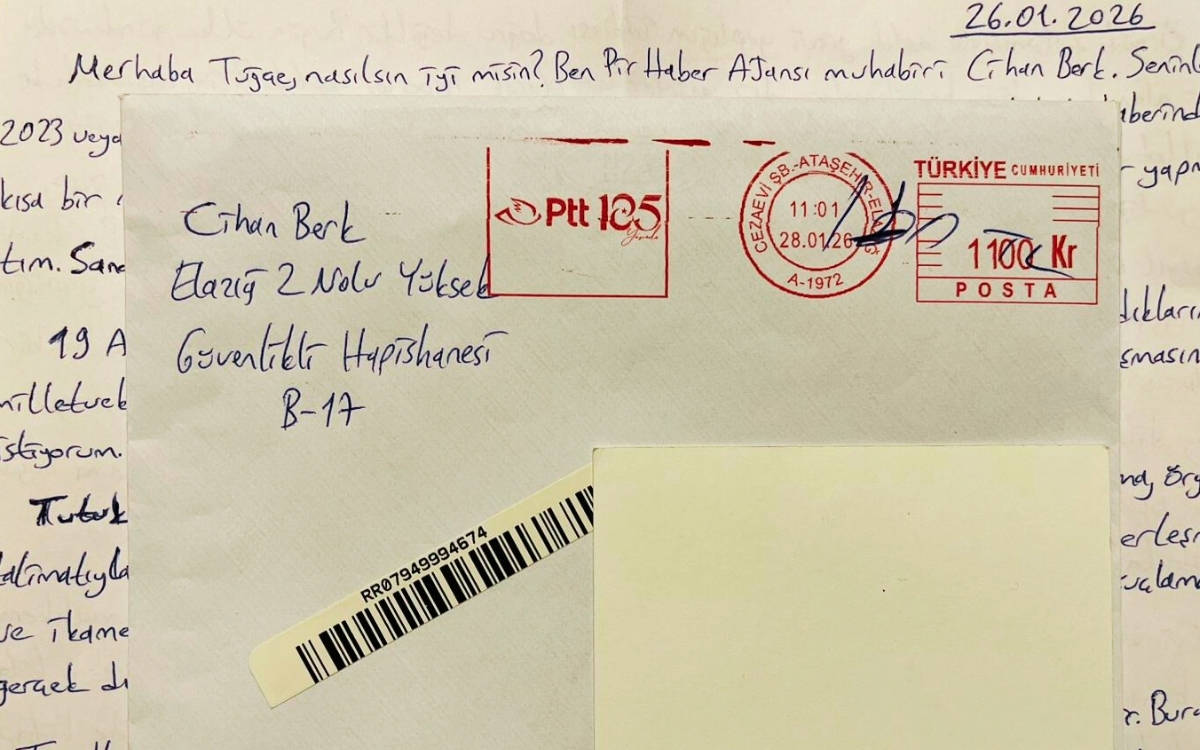 26.01.2026
Merhaba Tuğçe, nasılsın iyi misin? Ben Pir Haber Ajansı muhabiri Cihan Berk. Seninl
2023 veya
aberind
kısa bir
r yapm
tım. Sana
19 A
dıkların
milletvek
şmasın
istiyorum.
Tutuk
nd, Örg
erleşi
talimatıyla
uçlama
ve ikame
gerçek dı
r. Bura
Cihan Berk
Elazığ 2 Nolu Yüksek
Güvenlikli Hapishanesi
B-17
Ptt 185
CEZAEVİ ŞB.-ATAŞEHİR-ELAZIĞ
11:01
28.01.26
A-1972
TÜRKİYE CUMHURİYETİ
1100 Kr
POSTA
RR07949994674